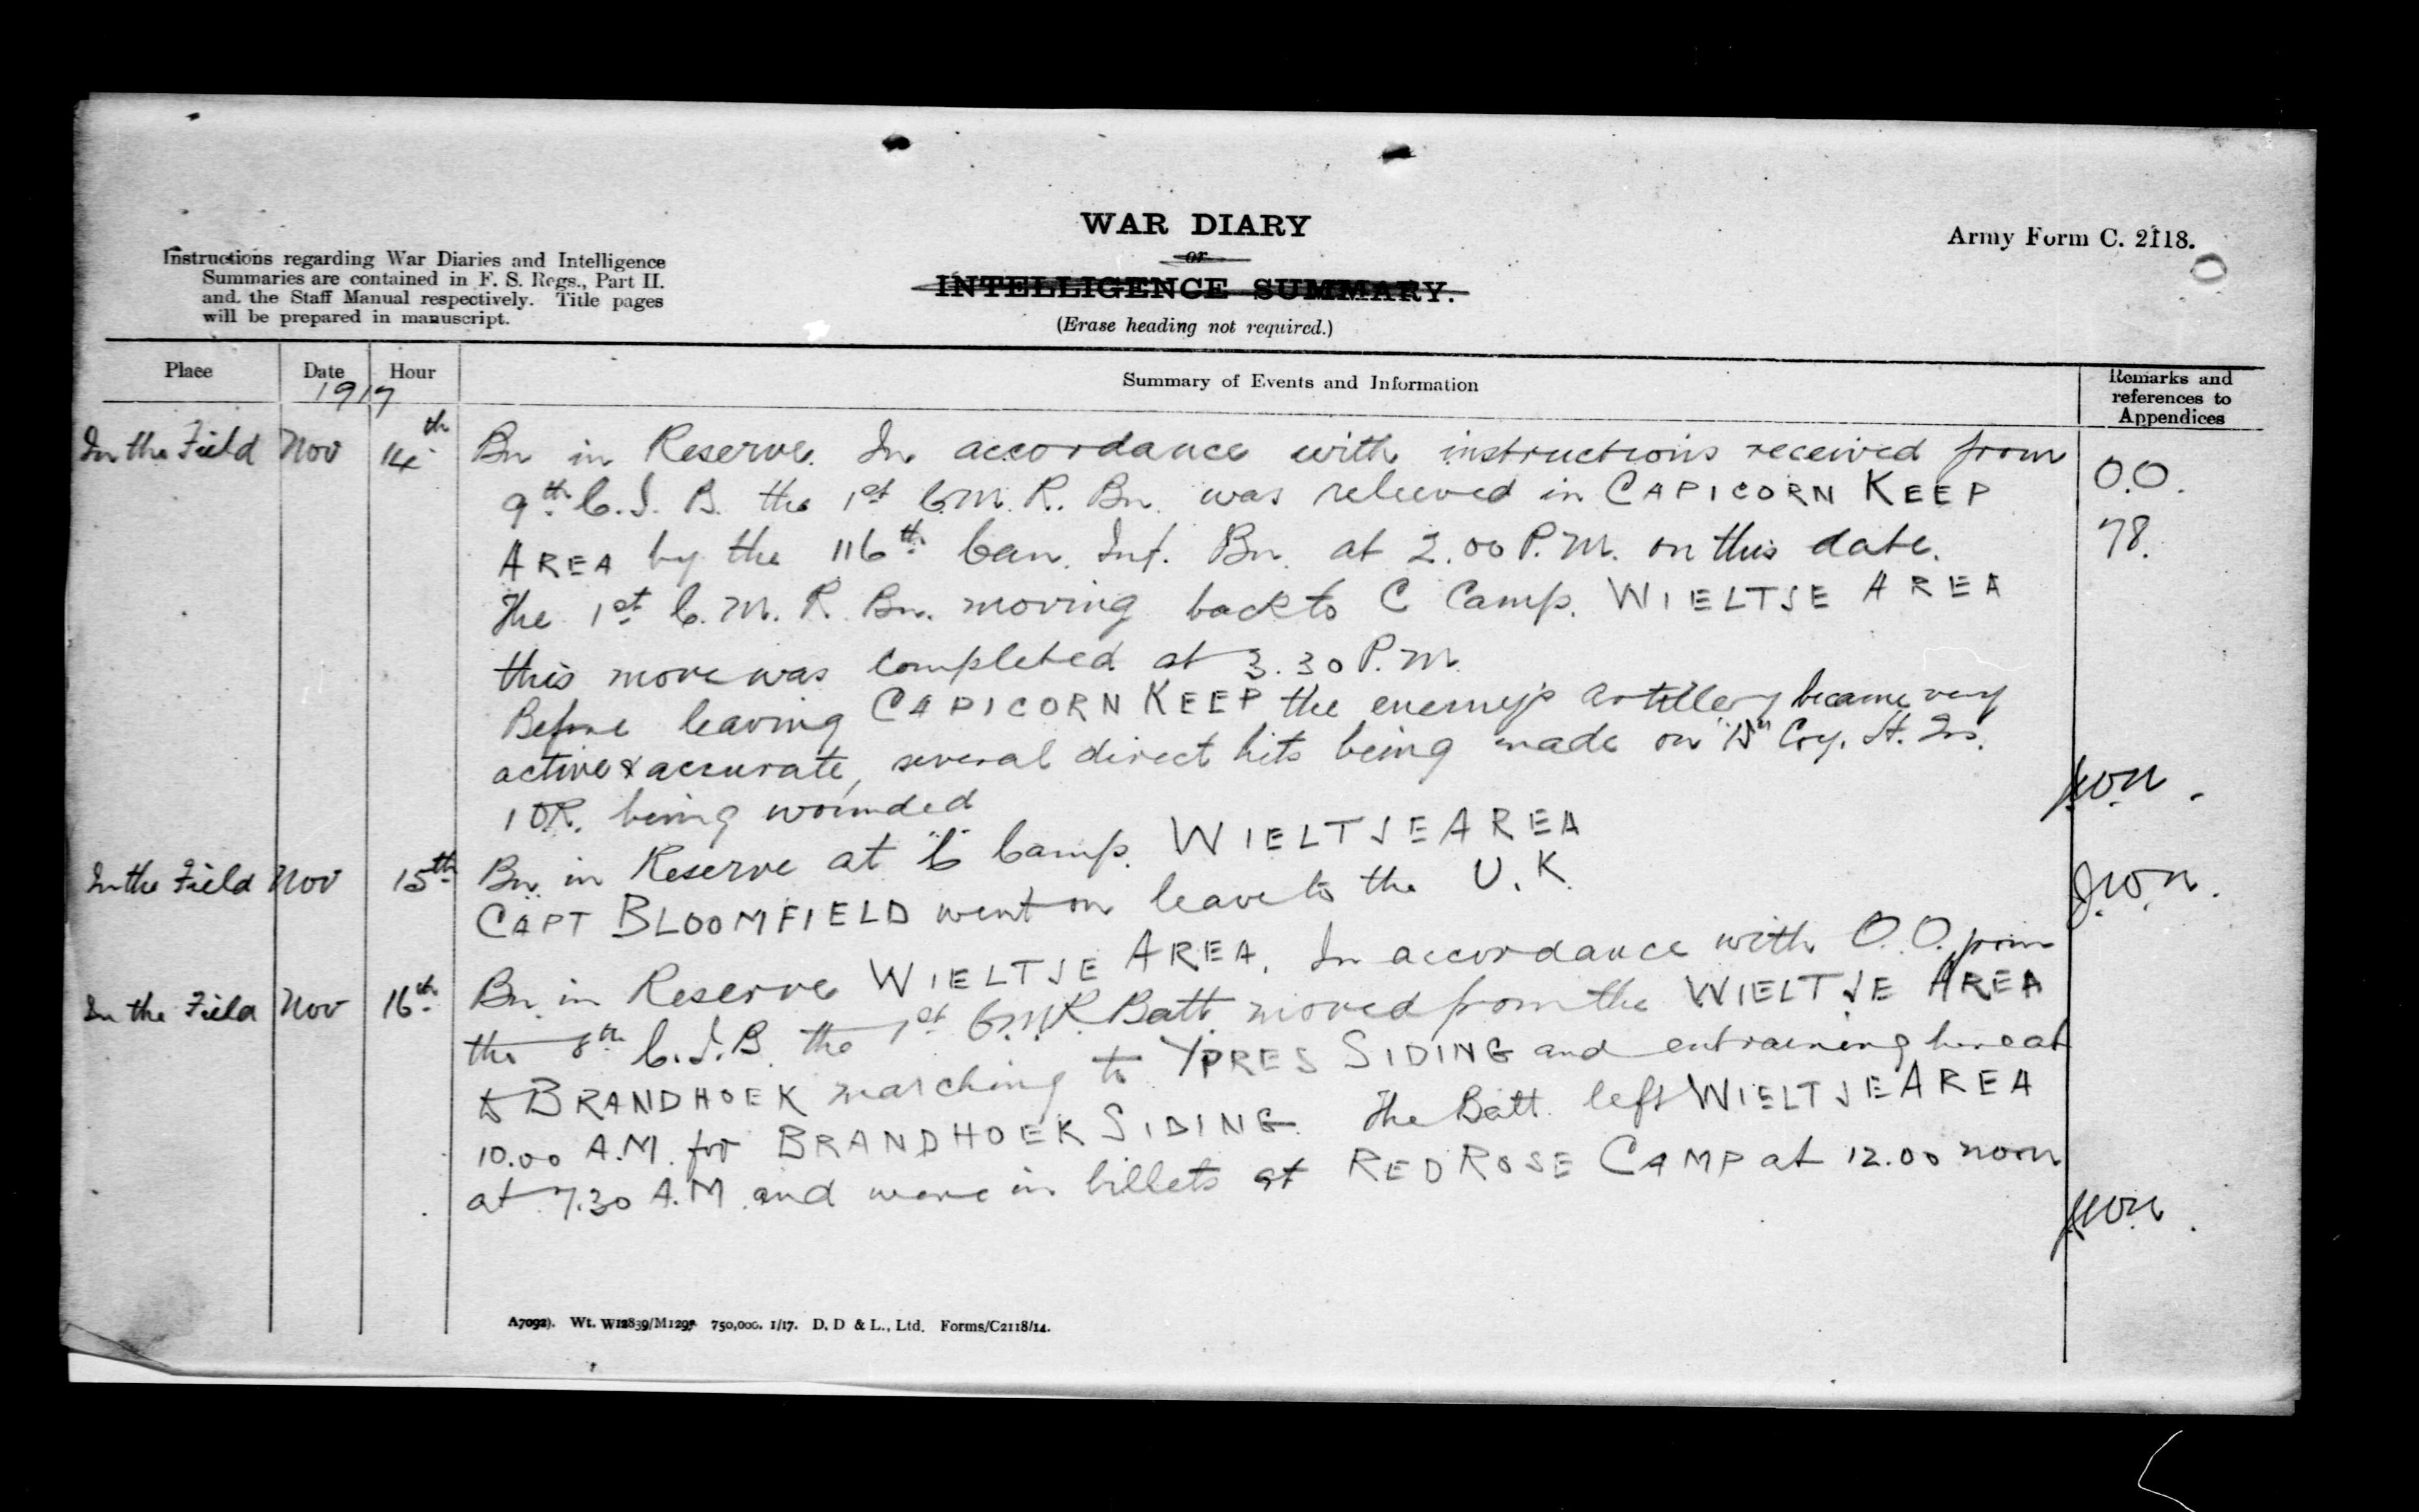 WAR DIARY
or
INTELLIGENCE SUMMARY.
(Erase heading not required.)
Army Form C. 2118.
Instructions regarding War Diaries and Intelligence
Summaries are contained in F. S. Regs., Part II.
and the Staff Manual respectively. Title pages
will be prepared in manuscript.
Place Date Hour Summary of Events and Information Remarks and references to Appendices
1917
In the Field Nov 14th Bn in Reserve. In accordance with instructions received from O.O.
9th C.I.B. the 1st C.M.R. Bn. was relieved in CAPICORN KEEP
AREA by the 116th Can. Inf. Bn. at 2.00 P.M. on this date. 78.
The 1st C.M.R. Bn. moving back to C Camp. WIELTJE AREA
this move was completed at 3.30 P.M.
Before leaving CAPICORN KEEP the enemy's artillery became very
active & accurate, several direct hits being made on Coy.
1 OR. being wounded
In the Field Nov 15th Bn. in Reserve at "C" Camp. WIELTJE AREA
CAPT BLOOMFIELD went on leave to the U.K.
In the Field Nov 16th Bn. in Reserve WIELTJE AREA. In accordance with O.O. from
the 8th C.I.B. the 1st C.M.R. Batt moved from the WIELTJE AREA
to BRANDHOEK marching to YPRES SIDING and entraining at
10.00 A.M. for BRANDHOEK SIDING. The Batt. left WIELTJE AREA
at 7.30 A.M. and were in billets at RED ROSE CAMP at 12.00 noon
A7092). Wt. W12839/M1297 750,000. 1/17. D. D & L., Ltd. Forms/C2118/14.